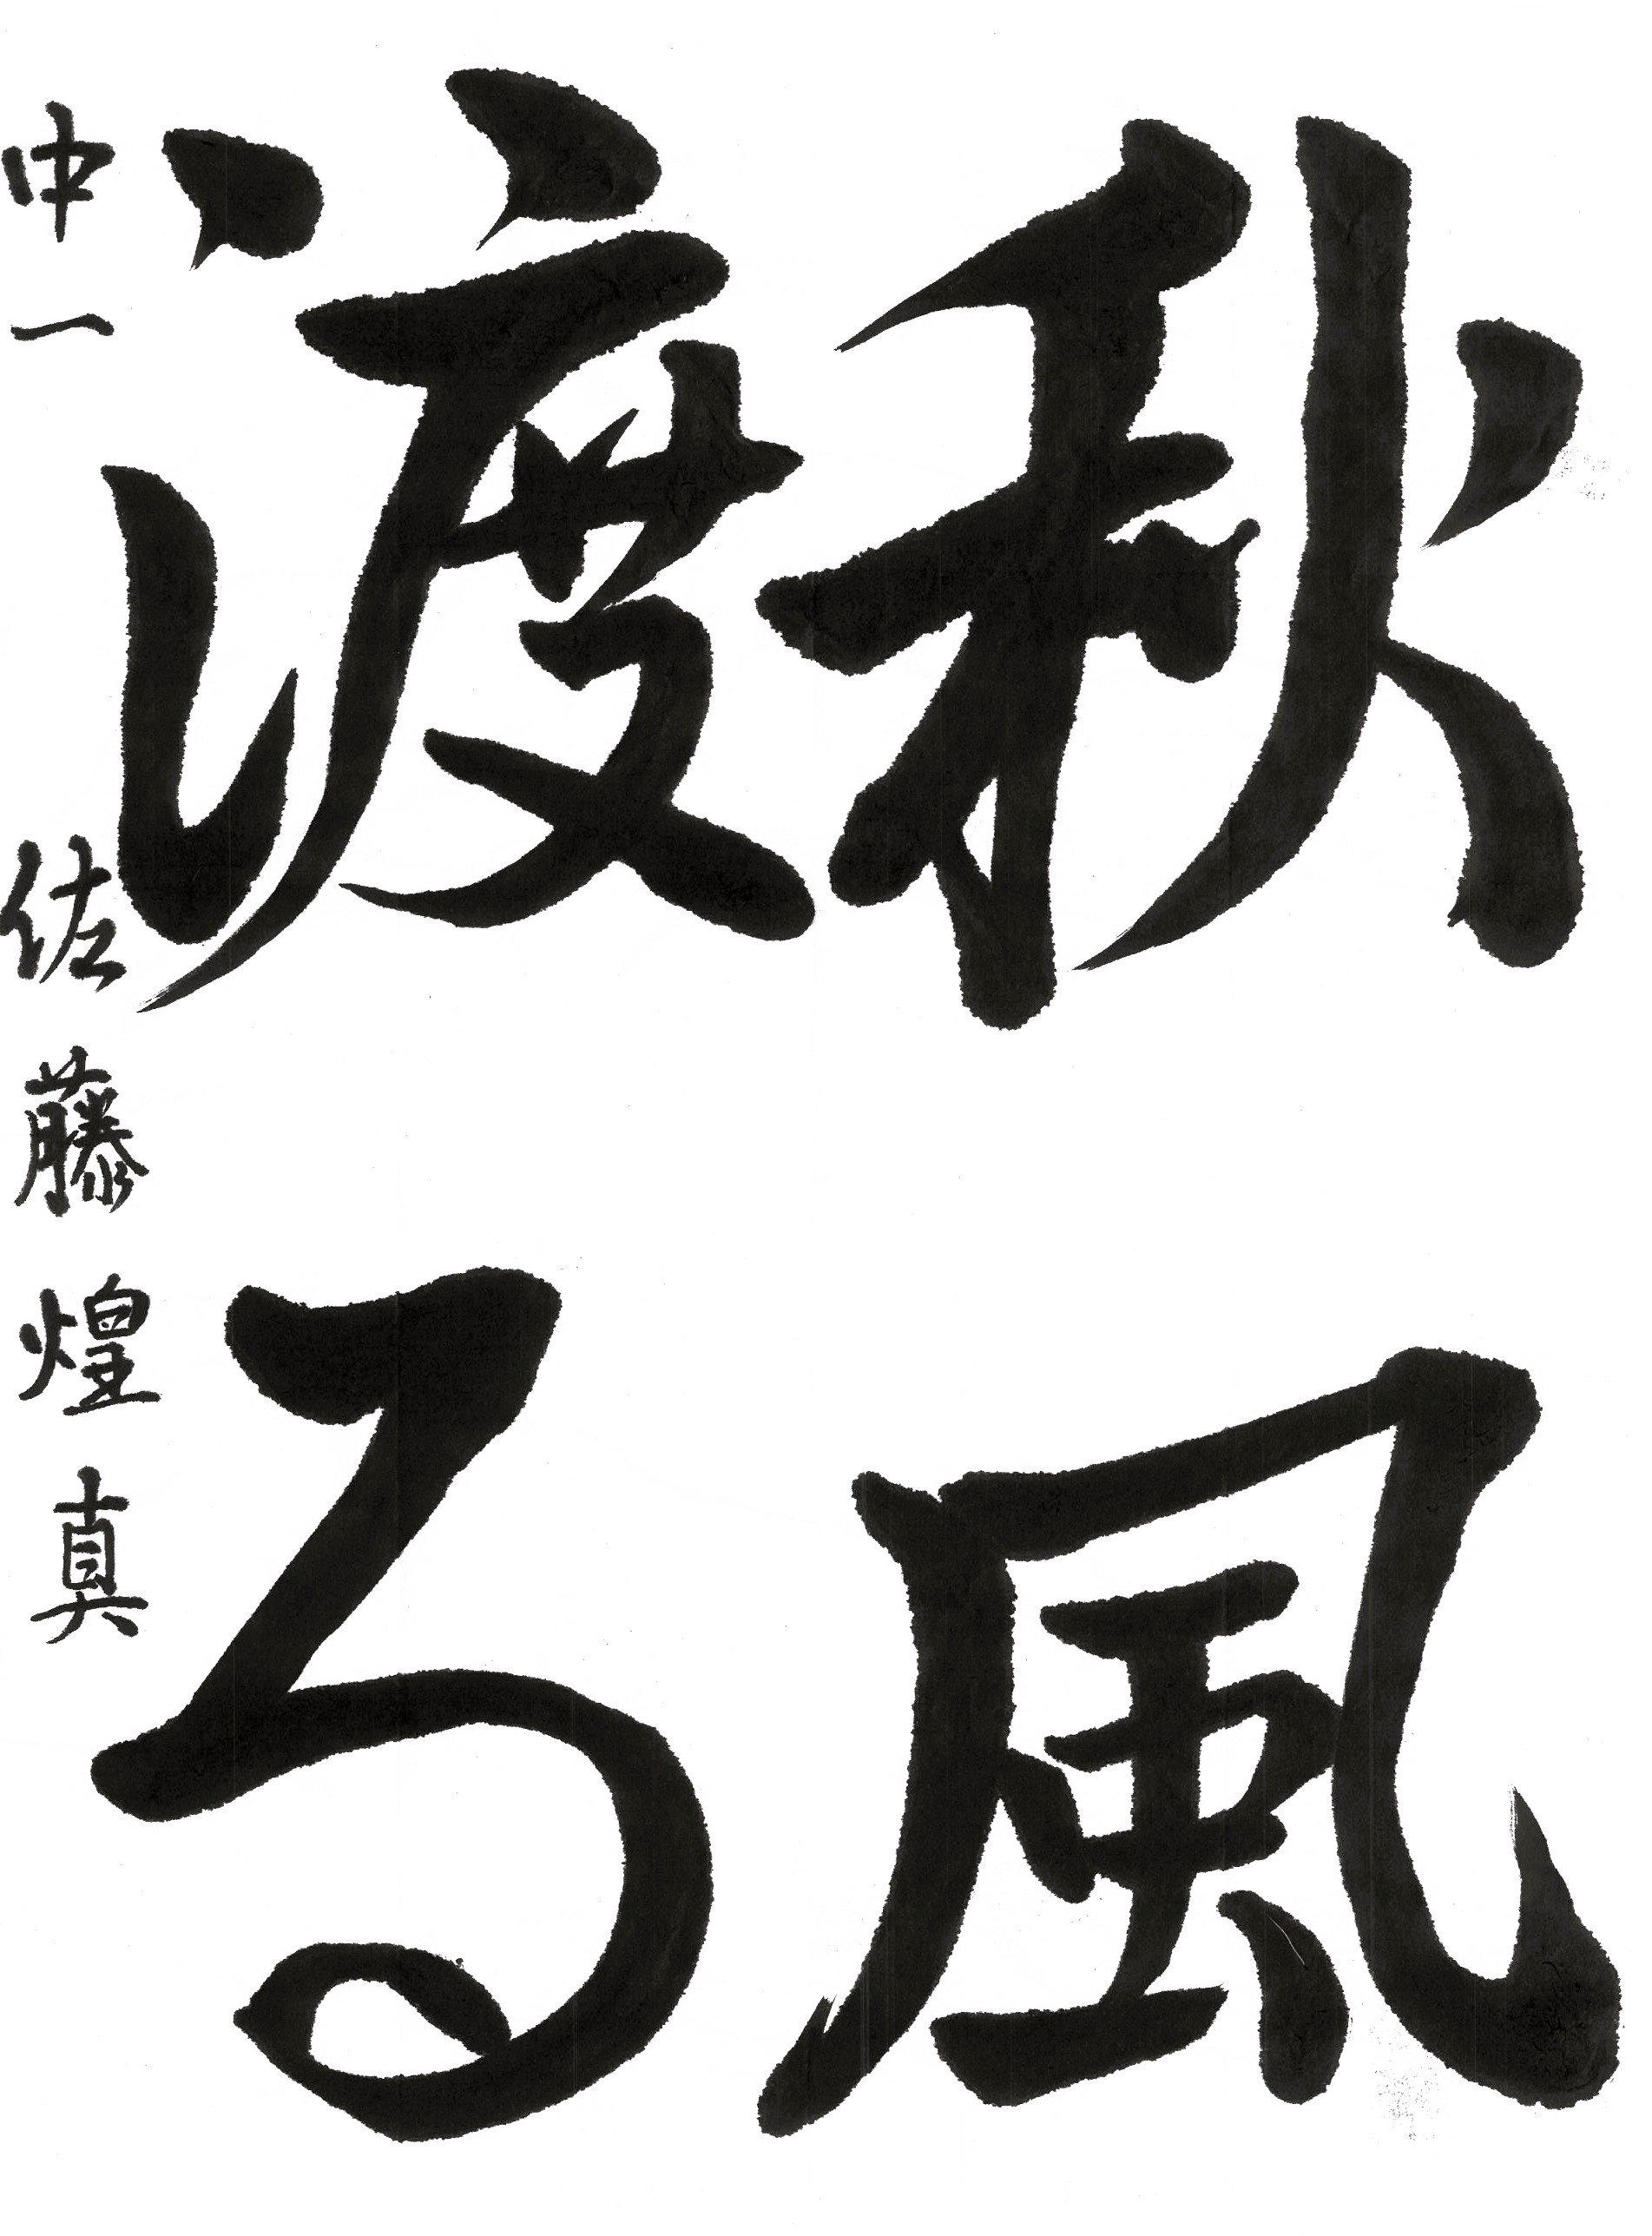 秋風
渡る
中一 佐藤煌真